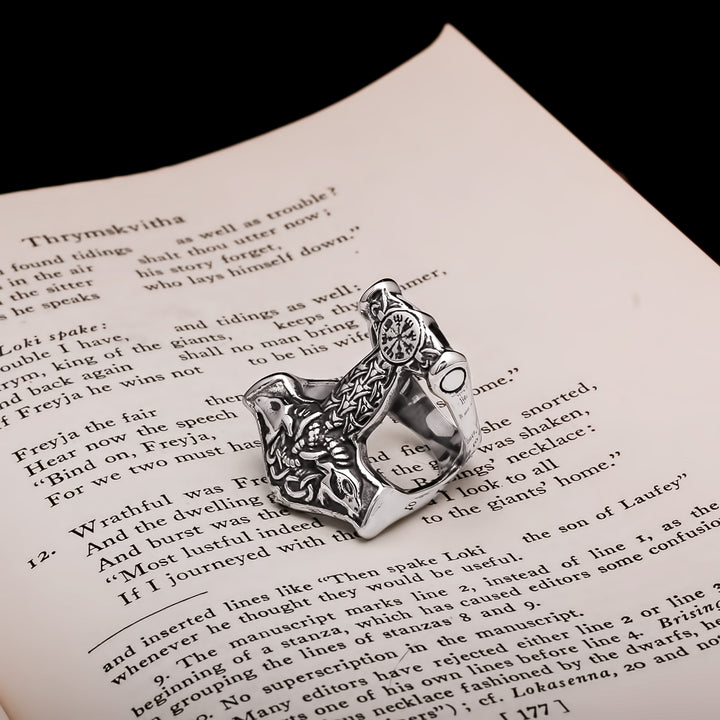 Thrymskvitha
found tidings as well as trouble?
in the air shalt thou utter now;
the sitter his story forget,
he speaks who lays himself down."
Loki spake:
ouble I have, and tidings as well:
rym, king of the giants, keeps
nd back again shall no man bring
f Freyja he wins not to be his wife
Freyja the fair
Hear now the speech ome."
"Bind on, Freyja,
For we two must
Wrathful was she snorted,
And the dwelling was shaken,
And burst was the necklace:
"Most lustful indeed I look to all
If I journeyed with to the giants' home."
12. the son of Laufey"
and inserted lines like "Then spake Loki
whenever he thought they would be useful.
9. The manuscript marks line 2, instead of line 1, as the
beginning of a stanza, which has caused editors some confusio
n grouping the lines of stanzas 8 and 9.
No superscription in the manuscript.
Many editors have rejected either line 2 or line 3
one of his own lines before line 4. Brising
necklace fashioned by the dwarfs, he
"); cf. Lokasenna, 20 and no
[177]